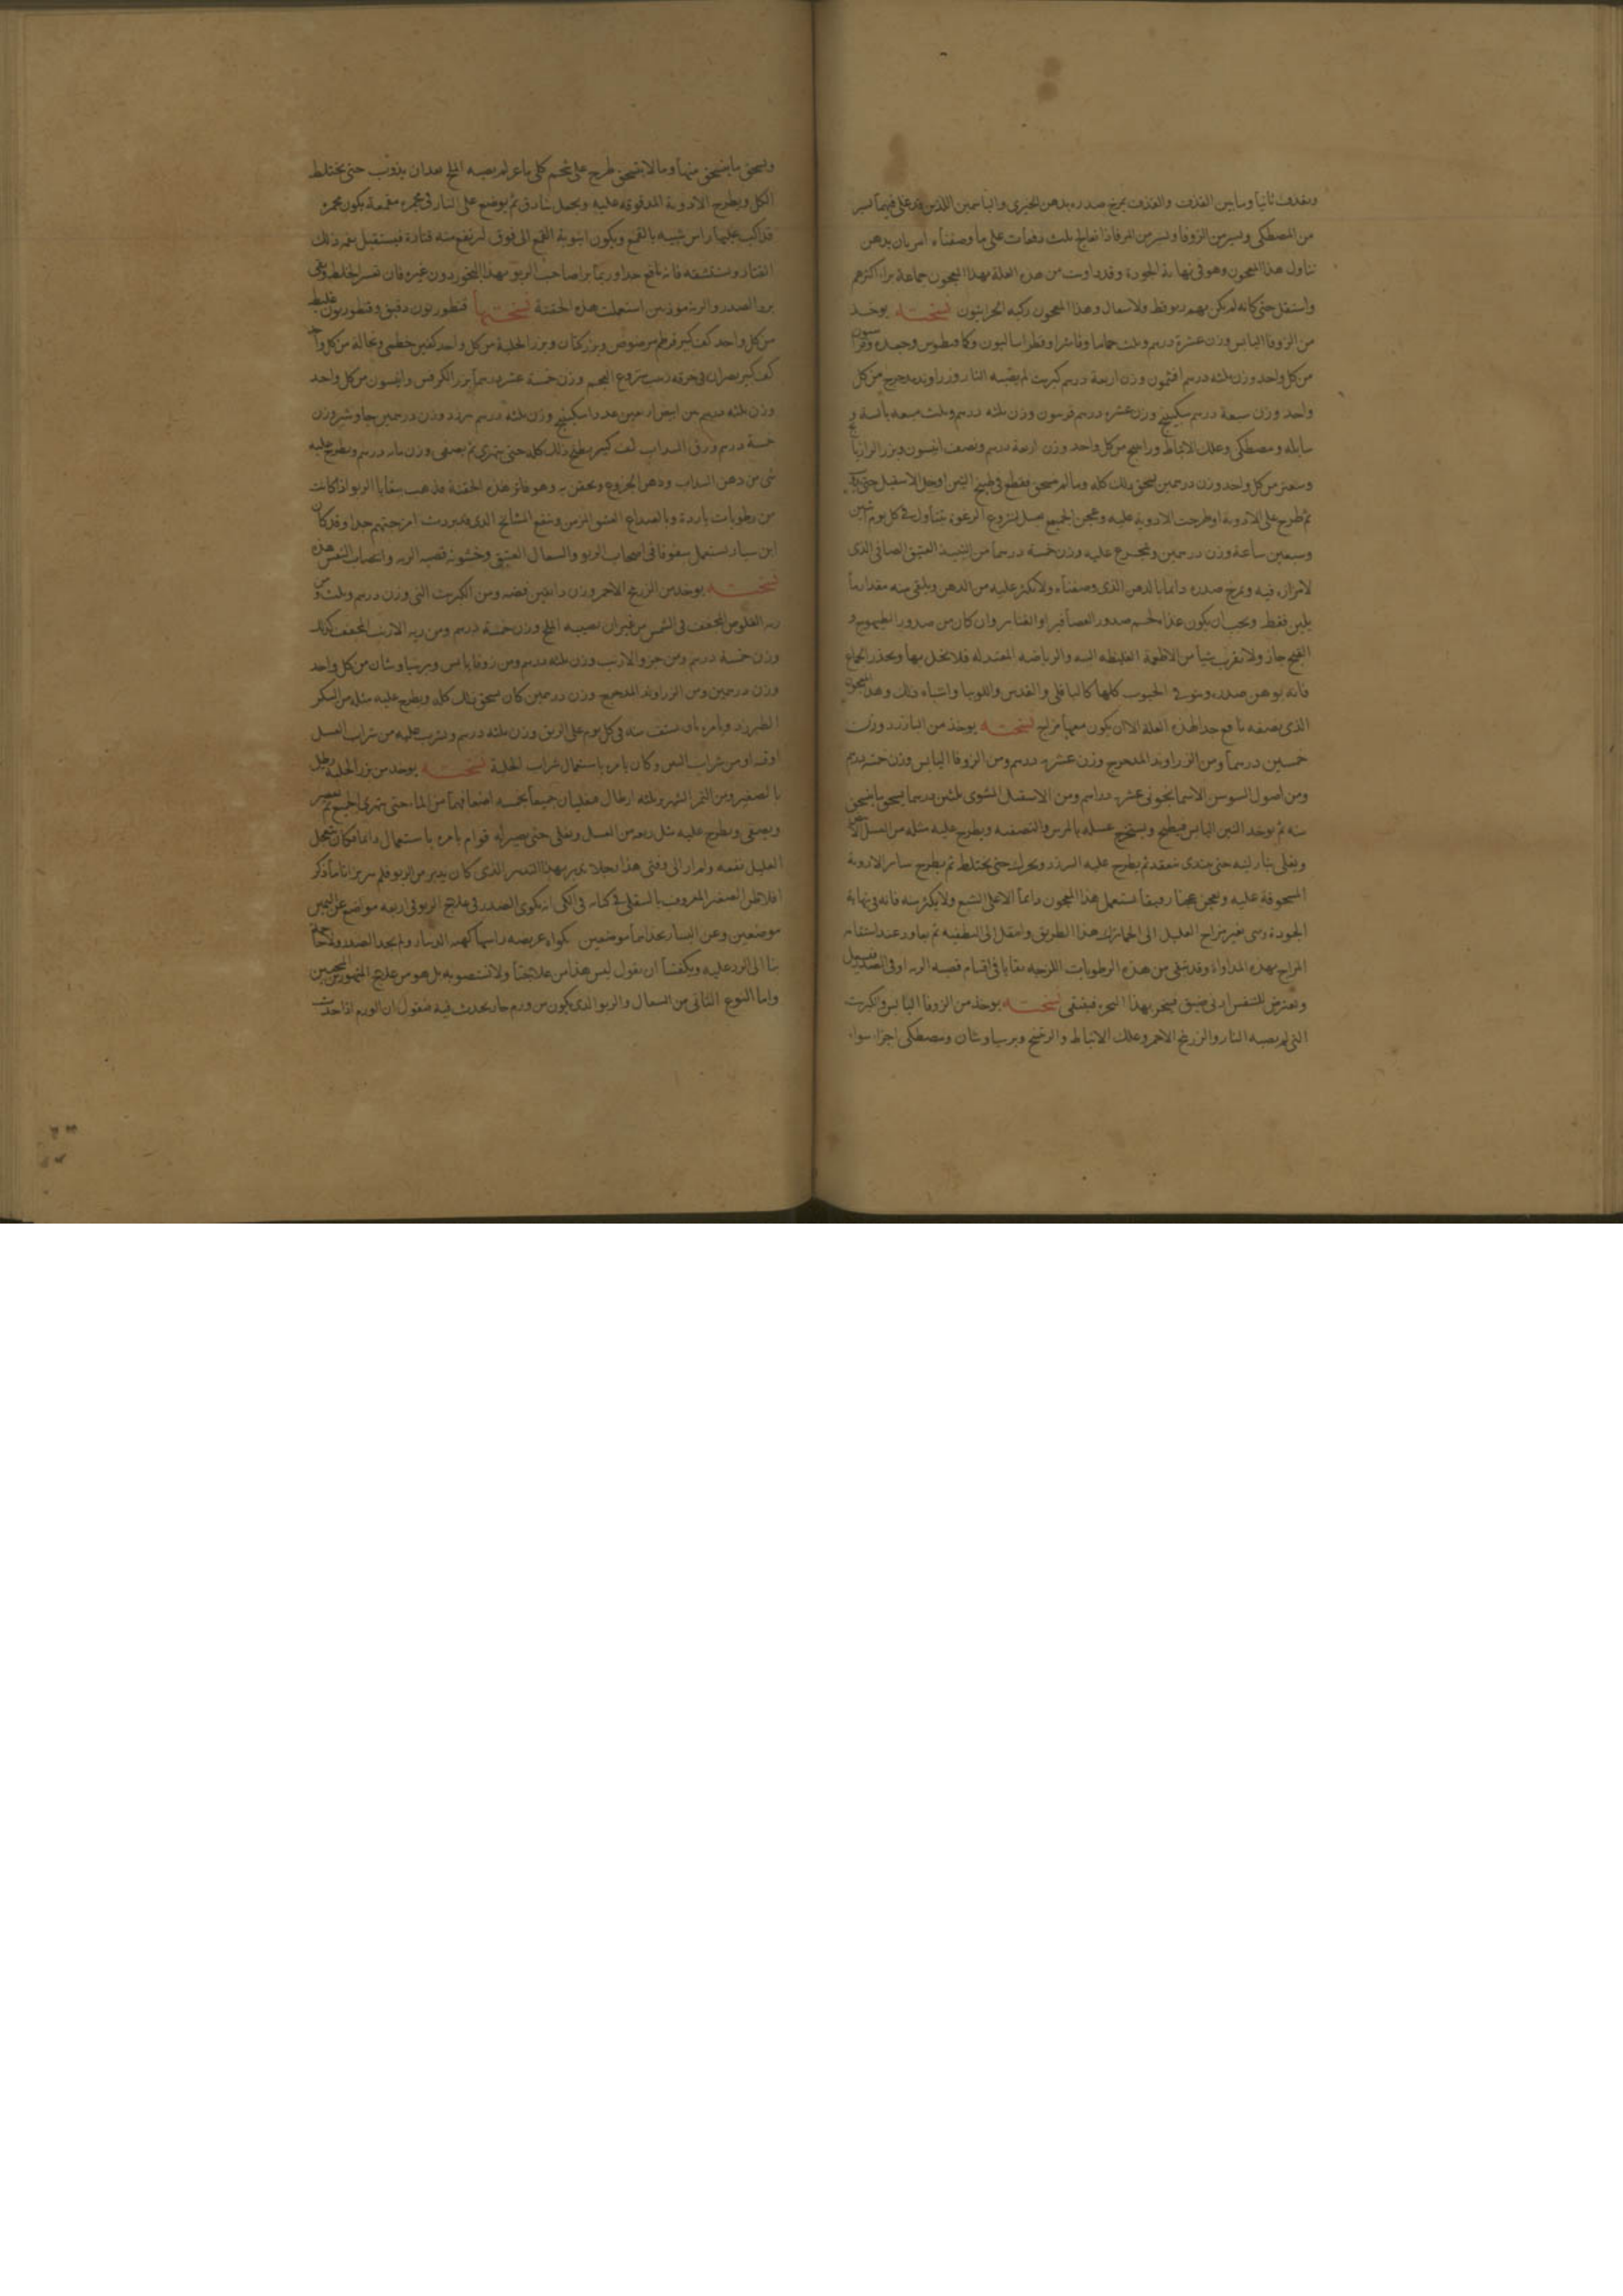 ويقذف ثانيا وما بين القذف والقذف يمرخ صدره بدهن الخيرى والياسمين اللذين قد على فيهما يسير
من المصطكى ويسير من الزوفا ويسير من المر فاذا تعالج بثلث دفعات على ما وصفناه امر بان يدمن
تناول هذا المعجون وهو فى نهاية الجودة وقد داويت من هذه العلة بهذا المعجون جماعة برا اكثرهم
واستقل حتى كانه لم يكن بهم ربو قط ولا سعال وهذا المعجون ركبه الحرانيون نسخته يوخذ
من الزوفا اليابس وزن عشرة درهم وثلث حماما وفاشرا وفطراساليون وكمافيطوس وجعده
من كل واحد وزن ثلثه درهم افتمون وزن اربعة درهم كبريت لم يصبه النار وزراوند مدحرج من كل
واحد وزن سبعة درهم سكبينج وزن عشره درهم وزن ثلثه درهم وثلث ميعه يابسة و
سايله ومصطكى وعلك الانباط من كل واحد وزن اربعة درهم ونصف انيسون وبزر الرازيا
وسعتر من كل واحد وزن درهمين يسحق ذلك كله وما لم ينسحق فقطع فى طبيخ التين او خل الاسقيل حتى
ثم طرح على الادوية او طرحت الادوية عليه وعجن الجميع بعسل منزوع الرغوة يتناول فى كل يوم
وسبعين ساعة وزن درهمين ويتجرع عليه وزن خمسة درهما من النبيذ العتيق الصافى الذى
لا مرارة فيه ويمرخ صدره دايما بالدهن الذى وصفناه ولا يكثر عليه من الدهن ويلقى منه مقدار ما
يلين فقط ويجب ان يكون غذا الجسم صدور العصافير او القنابر وان كان من صدور الطيهوج و
القبج جاز ولا يقرب شيأ من الاطعمة الغليظه البته والرياضه المعتدله فلا يخل بها ويحذر الجماع
فانه يوهن صدره ويتوقى الحبوب كلها كالباقلى والعدس واللوبيا واشباه ذلك وهذا المعجون
الذى نصفه نافع جدا لهذه العلة الا ان يكون معها مزاج نسخته يوخذ من البارزد وزن
خمسين درهما ومن الزراوند المدحرج وزن عشره درهم ومن الزوفا اليابس وزن خمسه درهم
ومن اصول السوسن الاسمانجونى عشره دراهم ومن الاسقيل المشوى ثلثين درهما يسحق ما ينسحق
منه ثم يوخذ التين اليابس فيطبخ ويستخرج عسله بالمرس والتصفيه ويطرح عليه مثله من العسل
ويغلى بنار لينه حتى يبتدى ينعقد ثم يطرح عليه البارزد ويحرك حتى يختلط ثم يطرح ساير الادوية
المسحوقة عليه ويعجن عجنا رقيقا يستعمل هذا المعجون دايما الا على الشبع ولا يكثر منه فانه فى نهاية
الجودة ومتى تغير مزاج العليل الى الحرارة ترك هذا الطريق وانتقل الى التطفيه ثم يعاود عند استقامه
المزاج بهذه المداواة وقد تبقى من هذه الرطوبات اللزجه بقايا فى اقسام قصبه الريه او فى الصدر
ويعترض للتنفس ادنى ضيق فيبخر بهذا البخور فينقى نسخته يوخذ من الزوفا اليابس والكبريت
التى لم يصبه النار والزرنيخ الاحمر وعلك الانباط والراتينج وبرسياوشان ومصطكى اجزاء سواء
ويسحق ما ينسحق منها وما لا ينسحق طرح على شحم كلى ماعز لم يصبه الملح بعد ان يذوب حتى يختلط
الكل ويطرح الادوية المدقوقة عليه ويجعل بنادق ثم يوضع على النار فى مجمره مقمعة يكون مجمره
قد اكب عليها راس شبيه بالقمع ويكون انبوبة القمع الى فوق ليرتفع منه قتارة فيستقبل بفمه ذلك
القتار ويستنشقه فانه نافع جدا وربما برا صاحب الربو بهذا البخور دون غيره فان تعسر الخلط وبقى
برد الصدر والريه موذيين استعملت هذه الحقنة نسختها قنطوريون دقيق وقنطوريون غليظ
من كل واحد كف كبير قرطم مرضوض وبزر كتان وبزر الحلبة من كل واحد كفين خطمى ونخالة من كل واحد
كف كبير يصران فى خرقه زبيب منزوع العجم وزن خمسة عشر درهما بزر الكرفس وانيسون من كل واحد
وزن ثلثه درهم تين ابيض اربعين عددا سكبينج وزن ثلثه درهم وزن درهمين جاوشير وزن
خمسة درهم ورق السداب كف كبير يطبخ ذلك كله حتى يتهرى ثم يصفى وزن درهم ويطرح عليه
شى من دهن السداب ودهن الخروع ويحقن به وهو فاتر هذه الحقنة تذهب ببقايا الربو اذا كانت
من رطوبات باردة وبالصداع العتيق المزمن وينفع المشايخ الذى قد بردت امزجتهم جدا وقد كان
ابن سيار يستعمل سفوفا فى اصحاب الربو والسعال العتيق وخشونة قصبه الريه وانتصاب النفس هذه
نسخته يوخذ من الزرنيخ الاحمر وزن دانقين فضه ومن الكبريت التى وزن درهم وثلث ومن
ريه الثعلب المجفف فى الشمس من غير ان يصيبه الملح وزن خمسة درهم ومن ريه الارنب المجفف كذلك
وزن خمسة درهم ومن خرو الارنب وزن ثلثه درهم ومن زوفا يابس وبرسياوشان من كل واحد
وزن درهمين ومن الزراوند المدحرج وزن درهمين كان يسحق ذلك كله ويطرح عليه مثله من السكر
الطبرزد ويامره بان يستف منه فى كل يوم على الريق وزن ثلثه درهم ويشرب عليه من شراب العسل
اوقيه او من شراب التين وكان يامره باستعمال شراب الحلبة نسخته يوخذ من بزر الحلبه رطل
بالصغير ومن التمر الشهريز ثلثه ارطال يغليان جميعا بخمسه اضعافهما من الماء حتى يتهرى الجميع ثم يعصر
ويصفى ويطرح عليه مثل ربعه من العسل ويغلى حتى يصير له قوام يامره باستعمال دايما فكان يتعجل
العليل نفعه ولم ار الى وقتى هذا رجلا تدبر بهذا التدبير الذى كان يدبر من الربو فلم يبرا تاما وذكر
افلاطن الصغير المعروف بالسقلى فى كتابه فى الكى انه يكوى الصدر فى علاج الربو فى اربعه مواضع عن اليمين
موضعين وعن اليسار بحذاهما موضعين بكواه عريضه راسها كهيه الدينار ولم يجد الصدر ولا حاجة
بنا الى الرد عليه ويكفينا ان نقول ليس هذا من علاجنا ولا نستصوبه بل هو من علاج المتهورين
واما النوع الثانى من السعال والربو الذى يكون من ورم حار يحدث فيه فنقول ان الورم اذا حدث